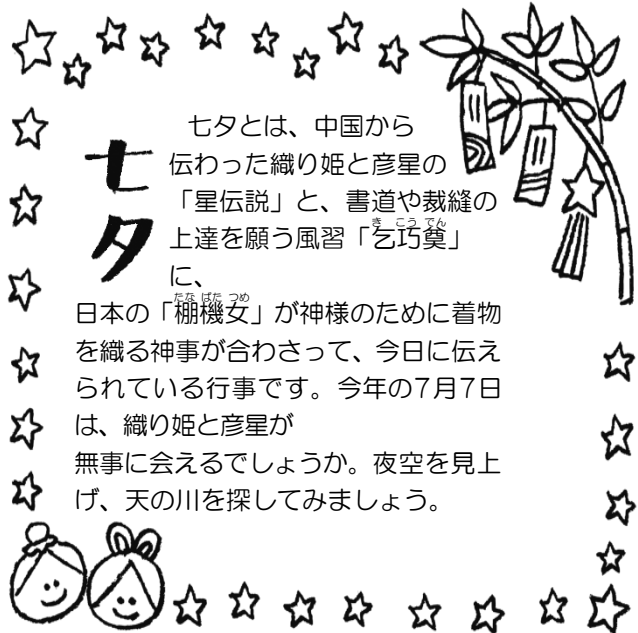 七夕
七夕とは、中国から
伝わった織り姫と彦星の
「星伝説」と、書道や裁縫の
き こう でん
上達を願う風習「乞巧奠」
に、
たな ばた つめ
日本の「棚機女」が神様のために着物
を織る神事が合わさって、今日に伝え
られている行事です。今年の7月7日
は、織り姫と彦星が
無事に会えるでしょうか。夜空を見上
げ、天の川を探してみましょう。